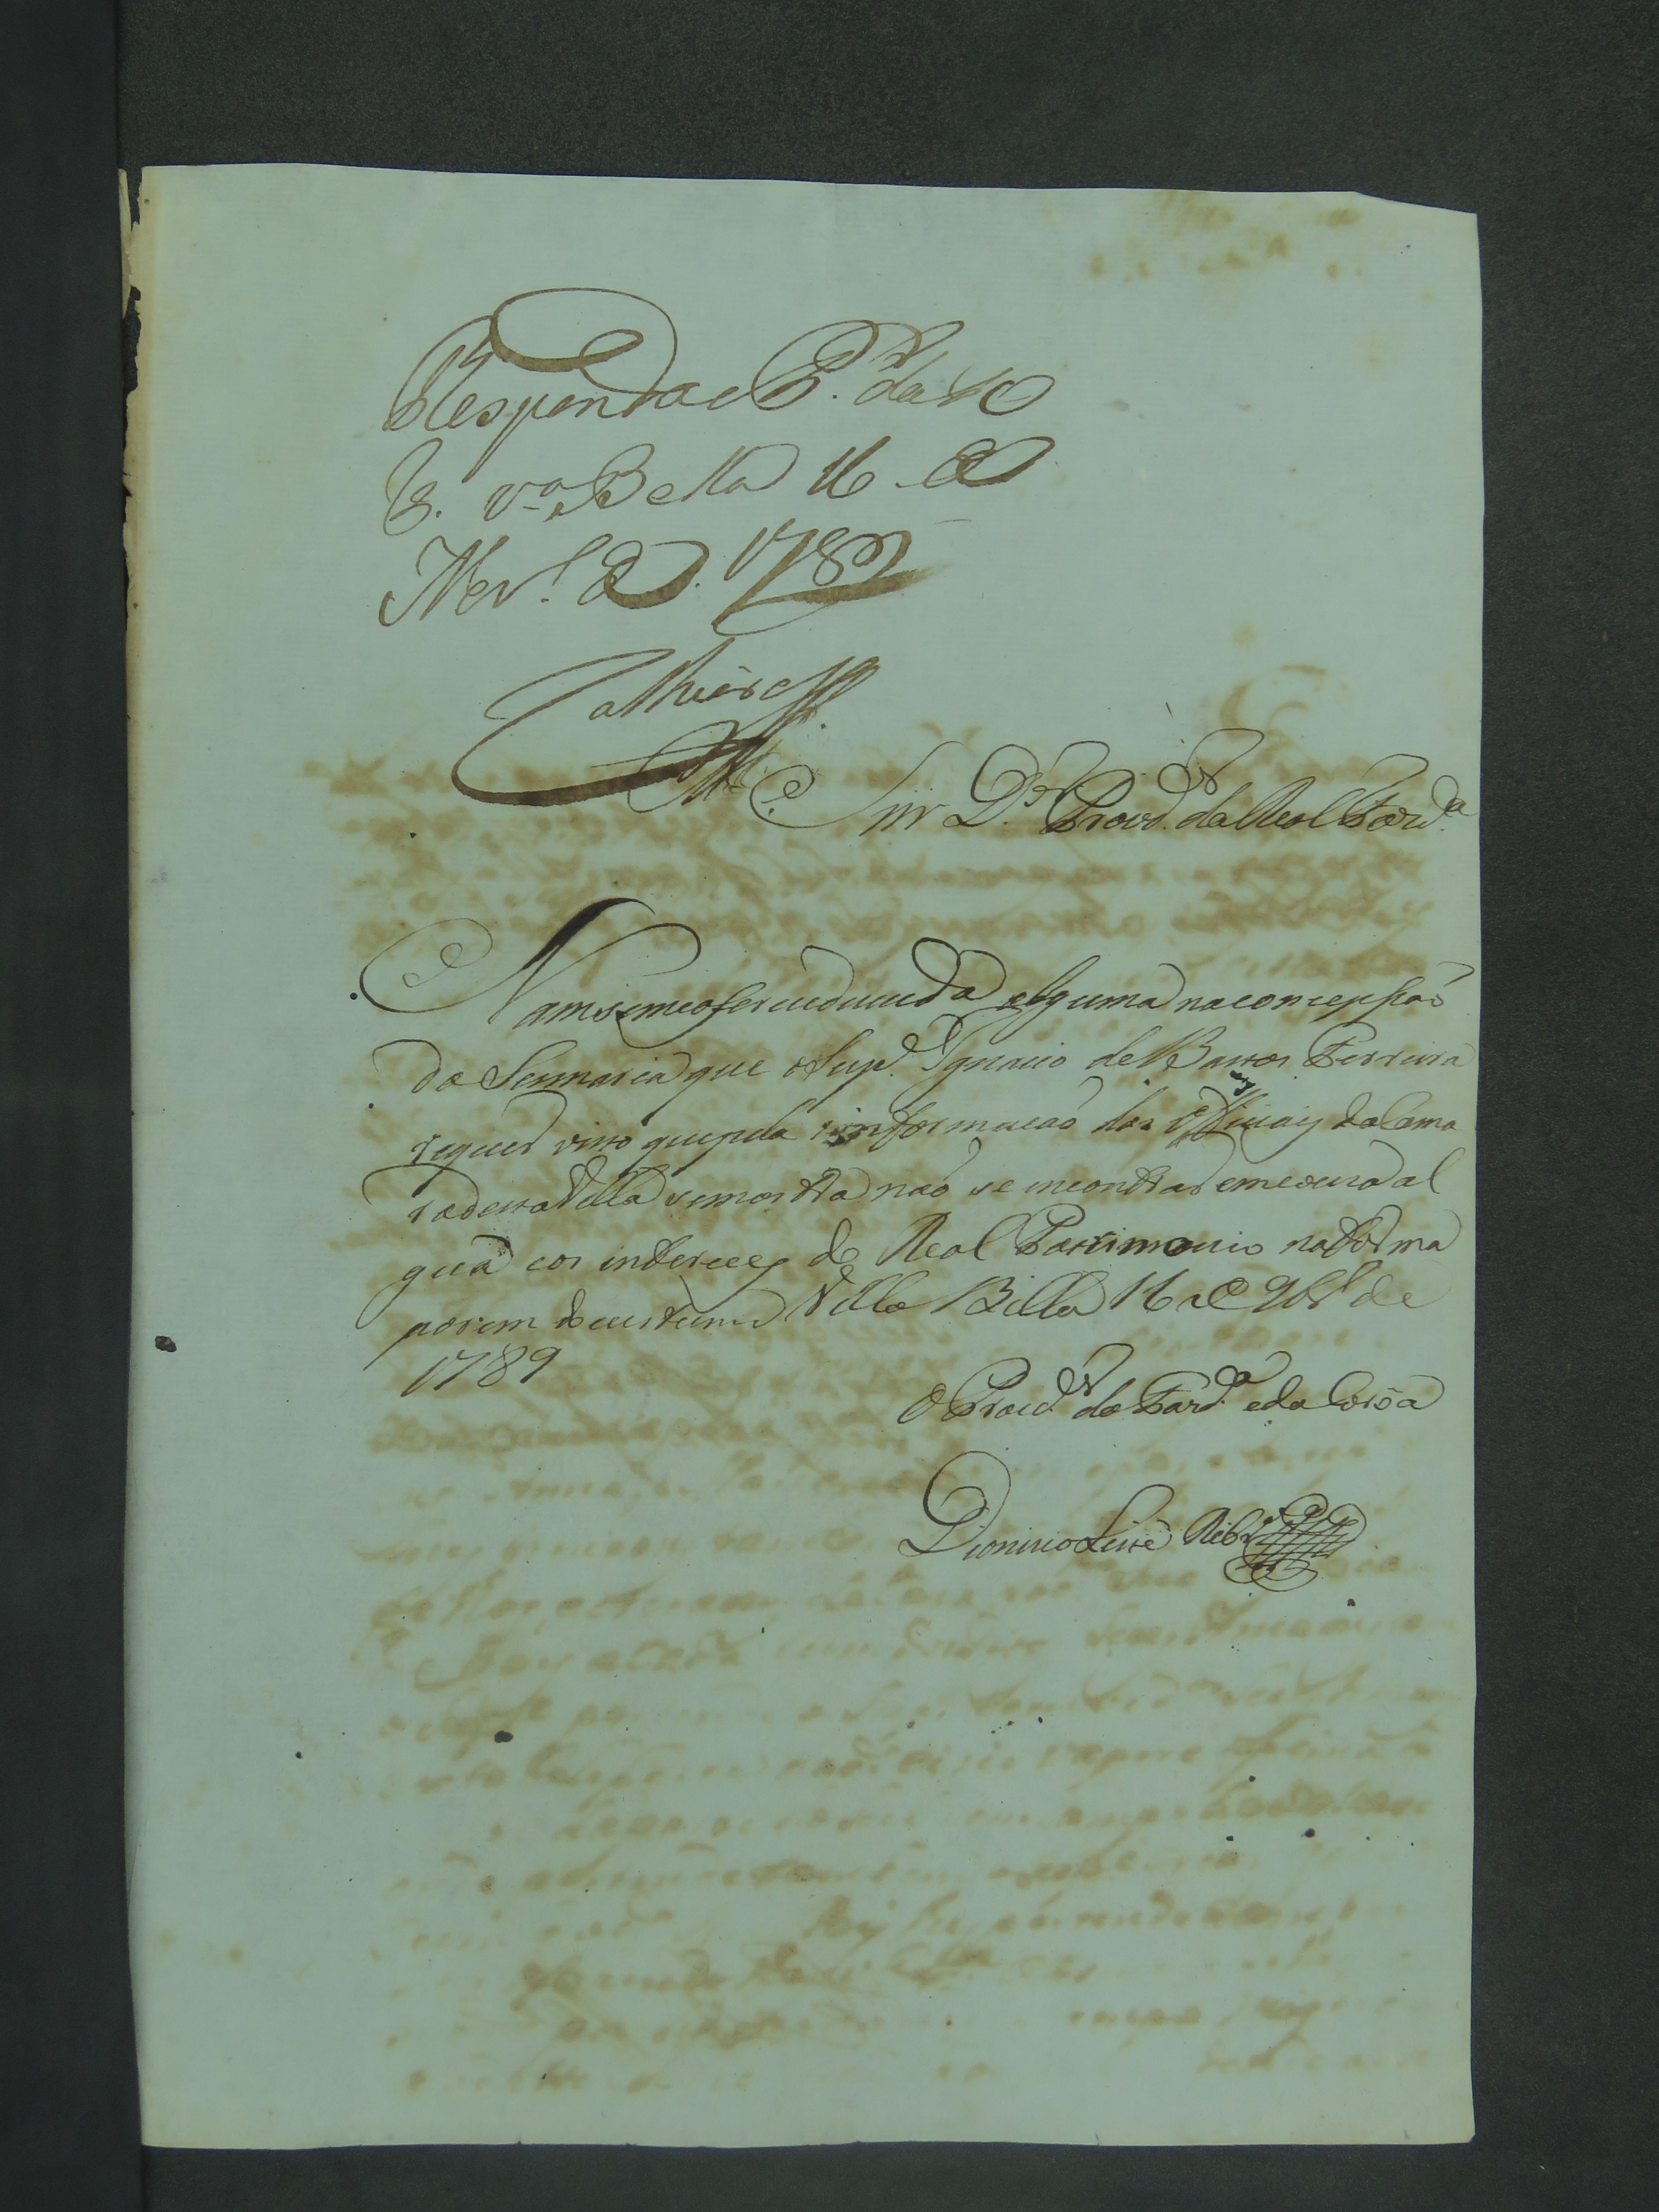 Responda o P.r da R.
F. V.a Bella 16 de
Nov.o de 1789
Calheiros
Snr D.or Provd.or da Real Fazd.a
Nam seme ofersse duvida alguma na consepsaõ
da Sesmaria que o Sup.e Ignacio de Barros Ferreira
requer visto que pela informacaõ dos Officiaes da Cama
ra desta Villa se mostra naõ se incontrar em coiza al
guã cos interces do Real Patrimonio na forma
porem do custume Villa Bella 16 de 9br.o de
1789
O Procd.or da Fazd.a e da Coroa
Dionizio Leite Ribr.o